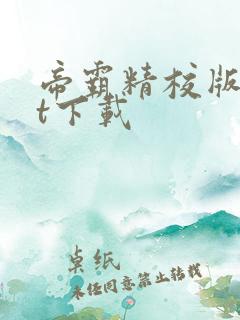 帝霸精校版
t下载
卓纸
未经同意禁止转载